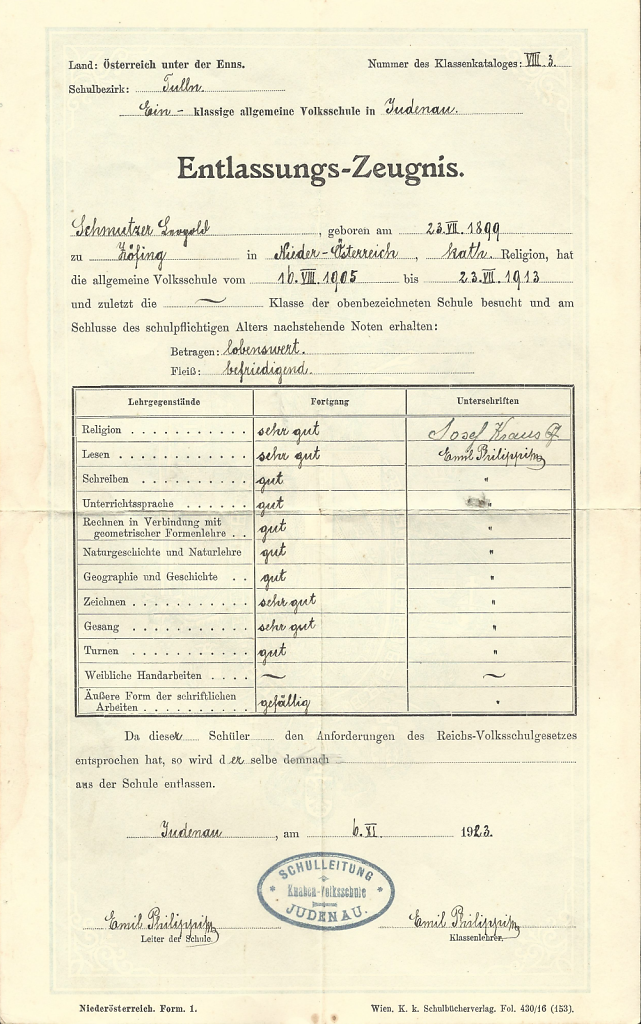 Land: Österreich unter der Enns. Nummer des Klassenkataloges: VIII. 3.
Schulbezirk: Tulln.
Ein - klassige allgemeine Volksschule in Judenau.
Entlassungs-Zeugnis.
Schmutzer Leopold, geboren am 23. VII. 1899
zu Zöfing in Nieder-Österreich, kath. Religion, hat
die allgemeine Volksschule vom 16. VIII. 1905 bis 23. VII. 1913
und zuletzt die ~ Klasse der obenbezeichneten Schule besucht und am
Schlusse des schulpflichtigen Alters nachstehende Noten erhalten:
Betragen: lobenswert.
Fleiß: befriedigend.
Lehrgegenstände Fortgang Unterschriften
Religion . . . . . . . . . . . sehr gut Josef Kraus
Lesen . . . . . . . . . . . . sehr gut Emil Philippi
Schreiben . . . . . . . . . . gut "
Unterrichtssprache . . . . . . gut "
Rechnen in Verbindung mit
geometrischer Formenlehre . . gut "
Naturgeschichte und Naturlehre gut "
Geographie und Geschichte . . gut "
Zeichnen . . . . . . . . . . . sehr gut "
Gesang . . . . . . . . . . . sehr gut "
Turnen . . . . . . . . . . . gut "
Weibliche Handarbeiten . . . . ~ ~
Äußere Form der schriftlichen
Arbeiten . . . . . . . . . gefällig "
Da dieser Schüler den Anforderungen des Reichs-Volksschulgesetzes
entsprochen hat, so wird der selbe demnach
aus der Schule entlassen.
Judenau, am 6. XI. 1923.
SCHULLEITUNG
Knaben-Volksschule
JUDENAU.
Emil Philippi Emil Philippi
Leiter der Schule. Klassenlehrer.
Niederösterreich. Form. 1. Wien. K. k. Schulbücherverlag. Fol. 430/16 (153).